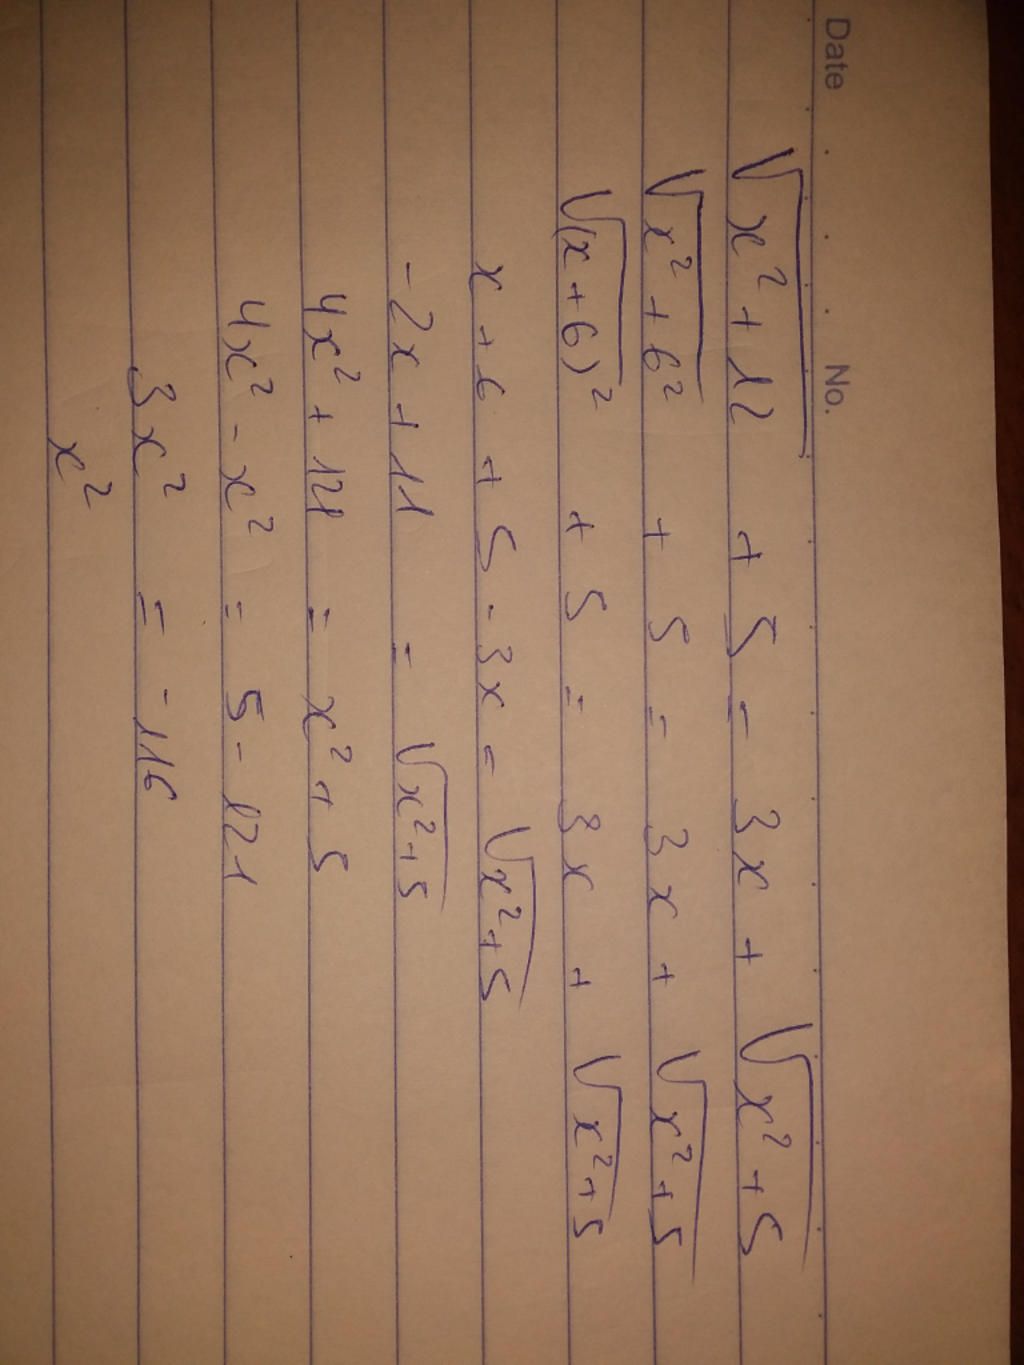 Date . . . No.
√(x²+12) + 5 = 3x + √(x²+5)
√(x²+6²) + 5 = 3x + √(x²+5)
√(x+6)² + 5 = 3x + √(x²+5)
x+6 + 5 - 3x = √(x²+5)
-2x+11 = √(x²+5)
4x²+121 = x²+5
4x² - x² = 5 - 121
3x² = -116
x²